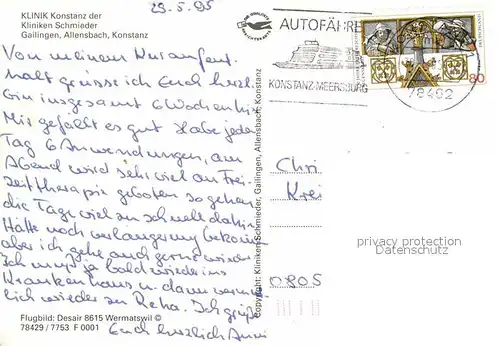 29.5.95
KLINIK Konstanz der
Kliniken Schmieder
Gailingen, Allensbach, Konstanz
Von meinem Kuraufent-
halt grüsse ich Euch herzl.
Bin insgesamt 6 Wochen hier
Mir gefällt es gut Habe jeden
Tag 6 Anwendungen, am
Abend wird sehr viel an Frei-
zeittherapie geboten so gehen
die Tage viel zu schnell dahin
Hätte noch verlängerung bekomm
aber ich gehe auch gerne wieder
Ich muss ja bald wieder ins
Krankenhaus u. dann
lich wieder zu Reha. Ich grüße
Euch herzlich
Flugbild: Desair 8615 Wermatswil ©
78429 / 7753 F 0001
Copyright: Kliniken Schmieder, Gailingen, Allensbach, Konstanz
AUTOFÄHRE
KONSTANZ-MEERSBURG
78462
DEUTSCHLAND
80
Chri
Krei
OROS
privacy protection
Datenschutz